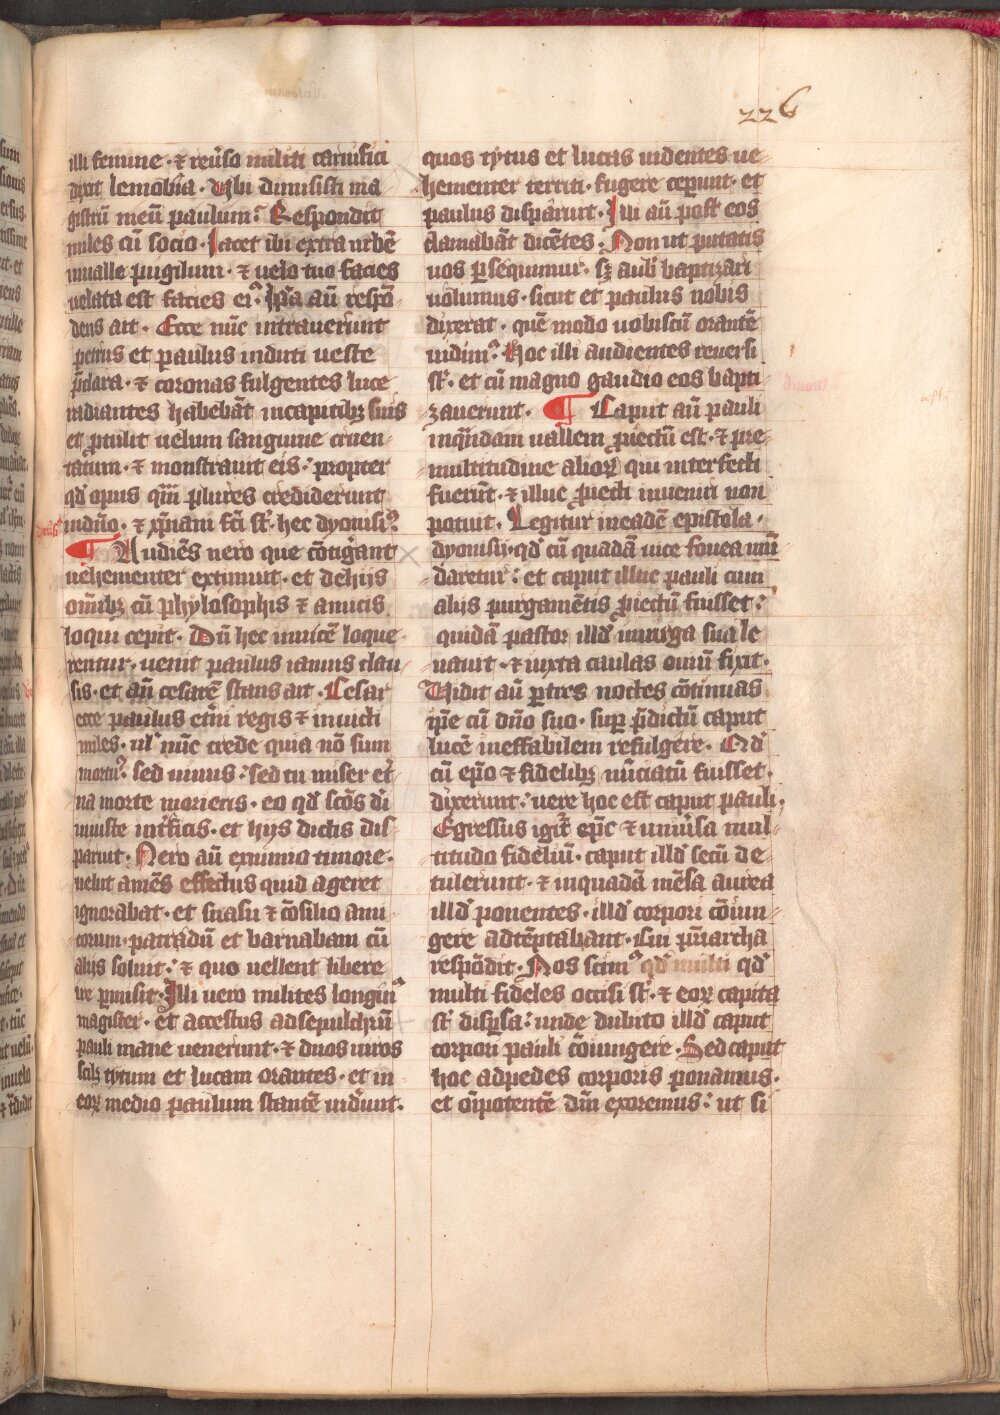 226
illi femine · ⁊ reũso militi carnifici
dixit lemobia · Ubi dimisisti ma
gistrũ meũ paulum? Respondit
miles cũ socio · Iacet ibi extra urbẽ
inualle pugilum · ⁊ uelo tuo facies
uelata est facies eiꝰ. Ipa aũ respõ
dens ait · Ecce nũc intrauerunt
petrus et paulus induti ueste
p̃clara · ⁊ coronas fulgentes luce
radiantes habebãt incapitibꝫ suis
et ꝓtulit uelum sanguine cruen-
tatum · ⁊ monstrauit eis: propter
qd̛ opus qm̃ plures crediderunt
indño · ⁊ xp̃iani fc̃i st̛. hec dyonisiꝰ
¶ Audiẽs nero que cõtigãnt
uehementer extimuit · et dehijs
om̃ibꝫ cũ phylosophis ⁊ amicis
loqui cepit · Dũ hec inuicẽ loque-
rentur · uenit paulus ianuis clau-
sis · et añ cesarẽ stans ait · Cesar
ecce paulus et̛ni regis ⁊ inuicti
miles · ul̛ nũc crede quia nõ sum
mortuꝰ. sed uiuus: sed tu miser et̛-
na morte morieris · eo qd̛ sc̃os di̛
iniuste int̛ficis · et hijs dictis dis-
paruit · Nero aũ exnimio timore ·
uelut amẽs effectus quid ageret
ignorabat · et suasu ⁊ cõsilio ami-
corum · patrõdũ et barnabam cũ
alijs soluit: ⁊ quo uellent libere
ire ꝑmisit · Illi uero milites longinꝰ
magister · et accestus adsepulchrũ
pauli mane uenerunt · ⁊ duos uiros
scilꝫ tytum et lucam orantes · et in
eoꝝ medio paulum stantẽ uid̛unt.
quos tytus et lucas uidentes ue-
hementer territi · fugere ceperunt · et
paulus disparuit · Illi aũ post eos
clamabãt dicẽtes · Non ut putatis
uos ꝑsequimur · sꝫ aub̛ baptizari
uolumus · sicut et paulus nobis
dixerat · quẽ modo uobiscũ orantẽ
uidimꝰ. Hoc illi audientes reuersi
st̛. et cũ magno gaudio eos bapti-
zauerunt · ¶ Caput aũ pauli
inq̃ndam uallem ꝓiectũ est · ⁊ pre-
multitudine alioꝝ qui interfecti
fuerũt · ⁊ illuc ꝓiecti inueniri non
potuit · Legitur ineadẽ epistola ·
dyonisij · qd̛ cũ quadã uice fouea mũ-
daretur: et caput illuc pauli cum
alijs purgamẽtis ꝓiectũ fuisset:
quidã pastor illd̛ inuirga sua le
uauit · ⁊ iuxta caulas ouiũ fixit ·
Uidit aũ ꝑtres noctes cõtinuas
ip̃e cũ dño suo · suꝑ p̃dictũ caput
lucẽ ineffabilem refulgere · Qd̛
cũ ep̃o ⁊ fidelibꝫ nũciatũ fuisset ·
dixerunt: uere hoc est caput pauli,
Egressus igit̛ ep̃c ⁊ uniũsa mul-
titudo fideliũ · caput illd̛ secũ de-
tulerunt · ⁊ inquadã mẽsa aurea
illd̛ ponentes · illd̛ corpori cõiun-
gere adtẽptabant · Cui pr̃iarcha
respõdit · Nos scimꝰ qd̛ multi qd̛
multi fideles occisi st̛. ⁊ eoꝝ capita
st̛ disꝑsa: unde dubito illd̛ caput
corpori pauli cõiungere · Sed caput
hoc adpedes corporis ponamus ·
et oĩpotentẽ dm̃ exoremus: ut si